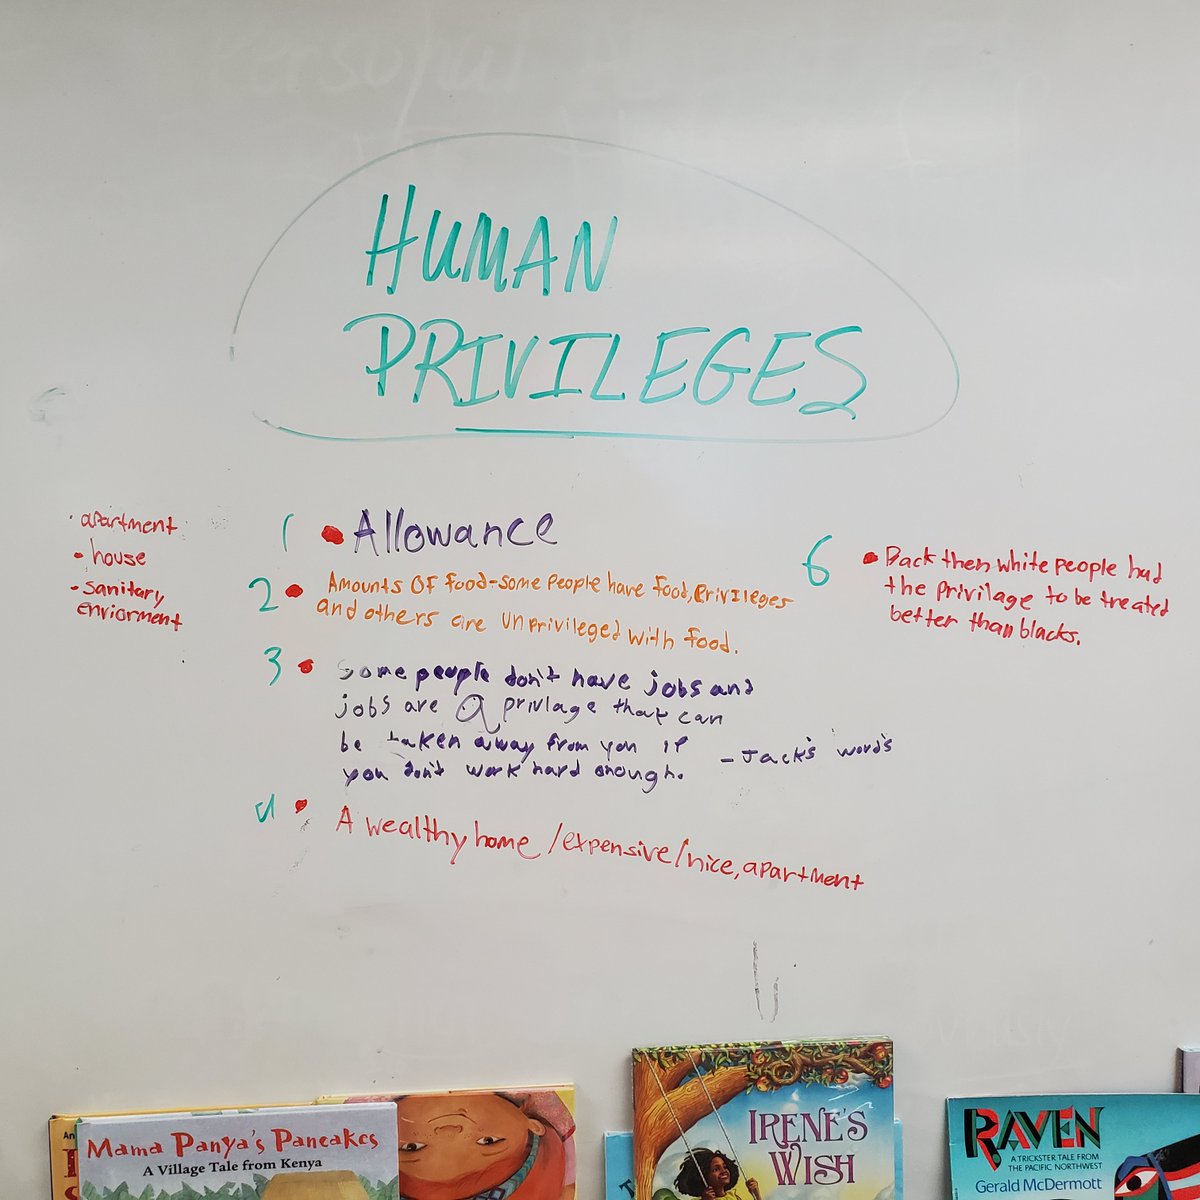 HUMAN
PRIVILEGES
· apartment
• house
• sanitary
enviorment
1 • Allowance
2 • Amounts of food-some people have food, privileges
and others are unprivileged with food.
3 • Some people don't have jobs and
jobs are a privlage that can
be taken away from you if
you don't work hard enough. - Jack's word's
4 • A wealthy home /expensive/nice, apartment
6 • Back then white people had
the privilage to be treated
better than blacks.
Mama Panya's Pancakes
A Village Tale from Kenya
IRENE'S
WISH
RAVEN
A TRICKSTER TALE FROM
THE PACIFIC NORTHWEST
Gerald McDermott